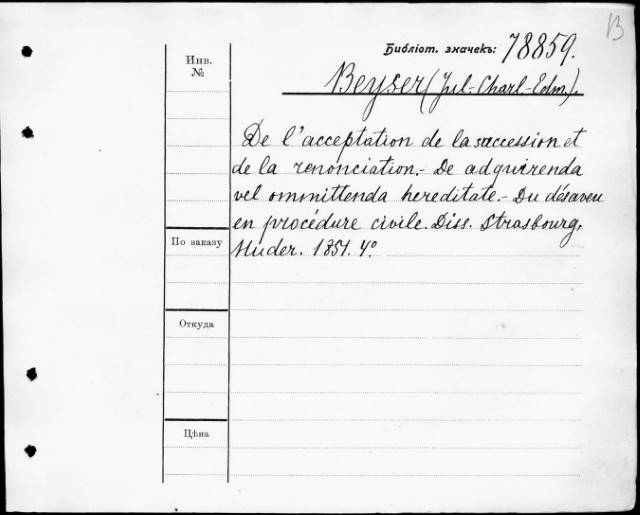 B
Библіот. значекъ: 78859.
Инв.
№
Beyser (Jul.-Charl.-Edm.).
De l'acceptation de la succession et
de la renonciation.- De adquirenda
vel ommittenda hereditate.- Du désaveu
en procédure civile. Diss. Strasbourg,
Huder. 1851. 4°
По заказу
Откуда
Цѣна